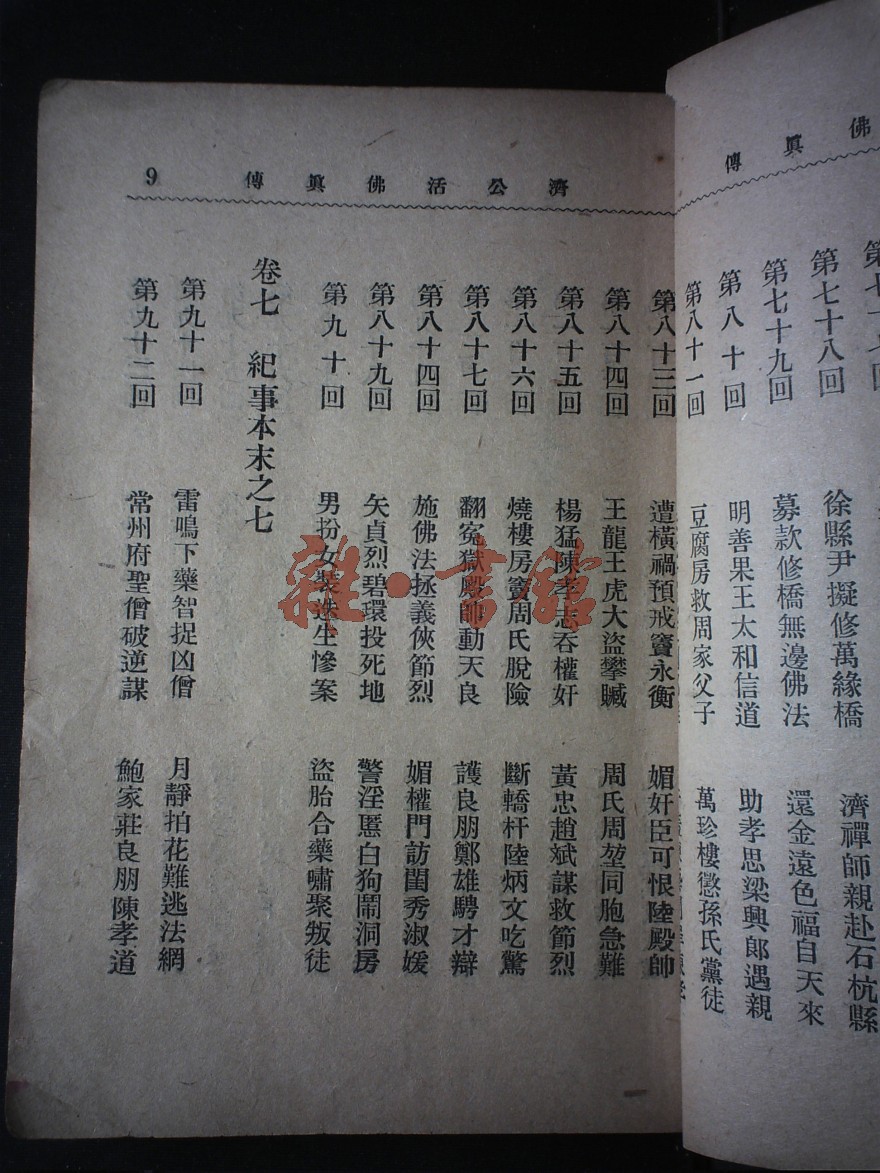 傳眞佛
第七十八回 徐縣尹擬修萬緣橋 濟禪師親赴石杭縣
第七十九回 募款修橋無邊佛法 還金遠色福自天來
第八十回 明善果王太和信道 助孝思梁興郎遇親
第八十一回 豆腐房救周家父子 萬珍樓懲孫氏黨徒
9 傳眞佛活公濟
第八十三回 遭橫禍預戒竇永衡 媚奸臣可恨陸殿帥
第八十四回 王龍王虎大盜攀贓 周氏周堃同胞急難
第八十五回 楊猛陳孝志吞權奸 黃忠趙斌謀救節烈
第八十六回 燒樓房竇周氏脫險 斷轎杆陸炳文吃驚
第八十七回 翻冤獄殿帥動天良 護良朋鄭雄騁才辯
第八十四回 施佛法拯義俠節烈 媚權門訪閨秀淑媛
第八十九回 矢貞烈碧環投死地 警淫慝白狗鬧洞房
第九十回 男扮女裝迭生慘案 盜胎合藥嘯聚叛徒
卷七 紀事本末之七
第九十一回 雷鳴下藥智捉凶僧 月靜拍花難逃法網
第九十二回 常州府聖僧破逆謀 鮑家莊良朋陳孝道
雜·書館